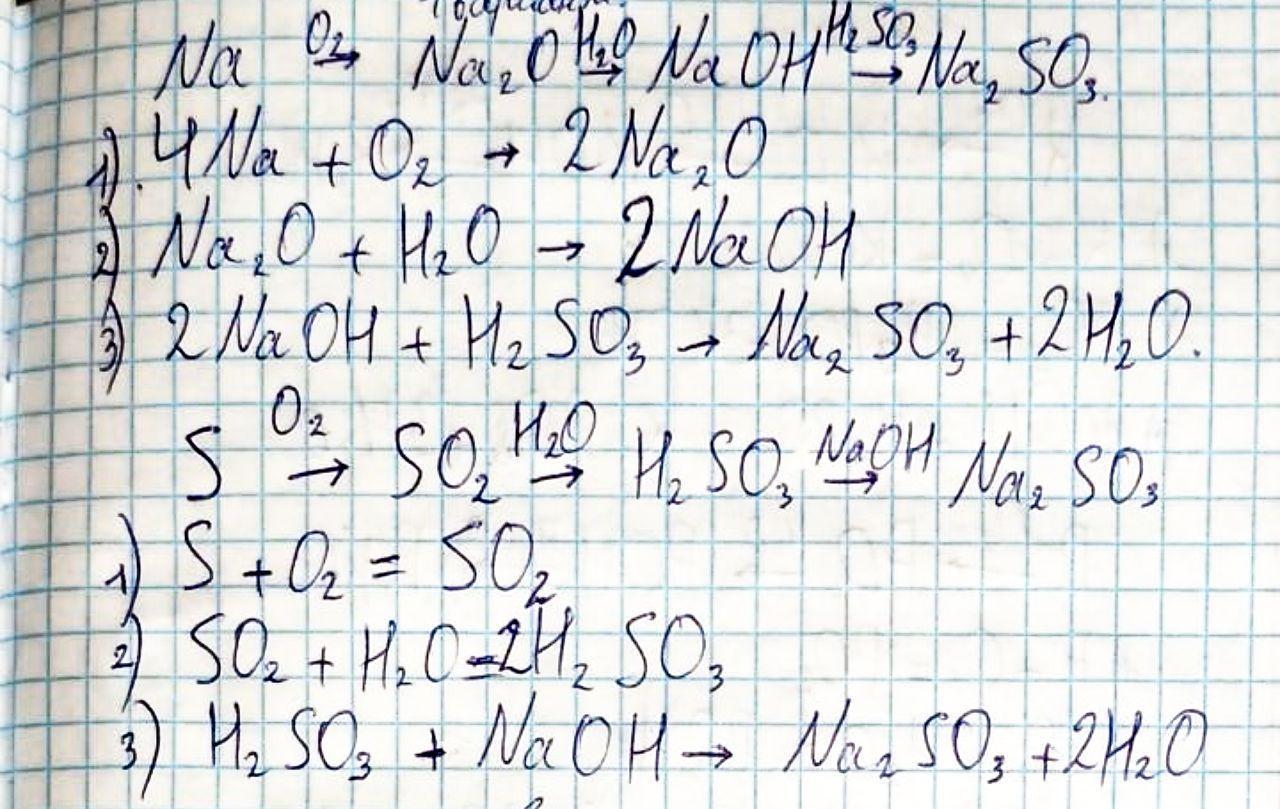 Na O₂→ Na₂O H₂O→ NaOH H₂SO₃→ Na₂SO₃.
1). 4Na + O₂ → 2Na₂O
2) Na₂O + H₂O → 2NaOH
3) 2NaOH + H₂SO₃ → Na₂SO₃ + 2H₂O.
S O₂→ SO₂ H₂O→ H₂SO₃ NaOH→ Na₂SO₃
1) S + O₂ = SO₂
2) SO₂ + H₂O = 2H₂SO₃
3) H₂SO₃ + NaOH → Na₂SO₃ + 2H₂O